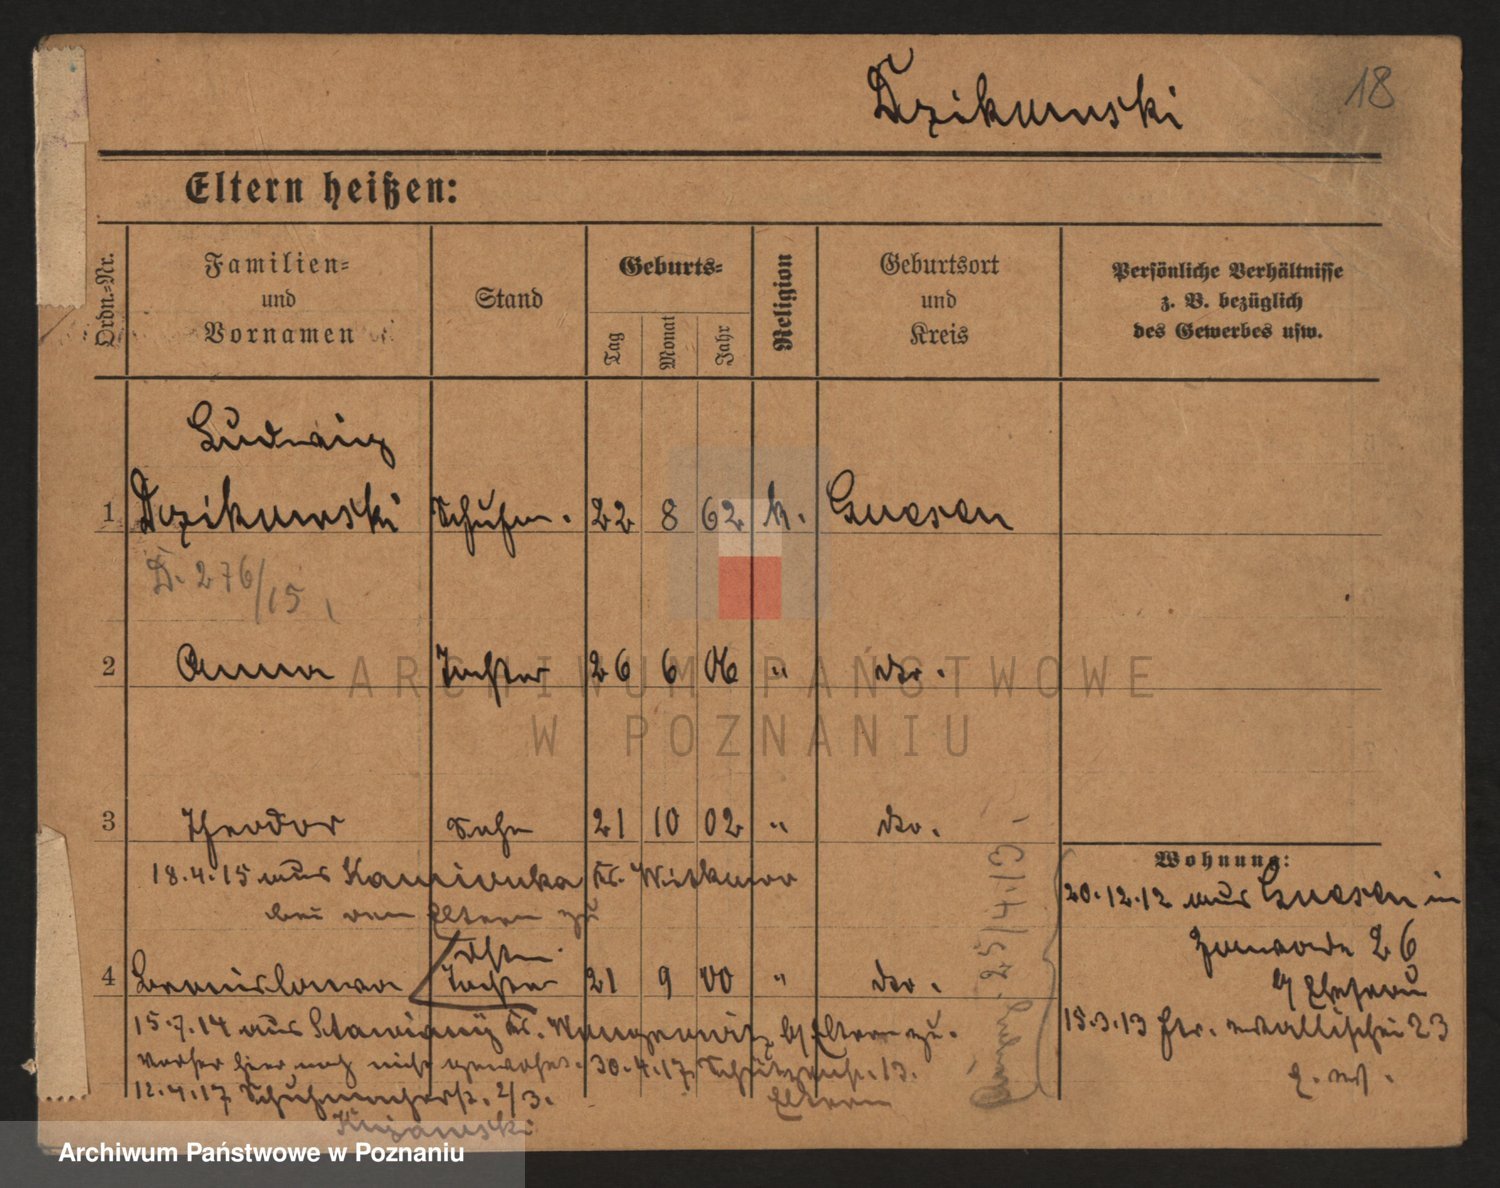 18
Dzikowski
Eltern heißen:
Ordn.-Nr.
Familien-
und
Vornamen
Stand
Geburts-
Tag
Monat
Jahr
Religion
Geburtsort
und
Kreis
Persönliche Verhältnisse
z. B. bezüglich
des Gewerbes usw.
Ludwig
1 Dzikowski Schuhm. 22 8 62 k. Gnesen
D. 276/15
2 Anna Tochter 26 6 06 " do.
ARCHIWUM PAŃSTWOWE
W POZNANIU
3 Theodor Sohn 21 10 02 " do.
18.4.15 aus Kamionka Kr. Witkowo
bei den Eltern zu
4 Bronislawa Tochter 21 9 00 " do.
15.7.14 aus Kr. b/ Eltern zu.
vorher hier noch nicht gewohnt. 30.4.17 Schützenstr. 13.
Eltern
12.4.17 Schuhmacherstr. 2/3.
Kujawski
25/4.19.
Wohnung:
20.12.12 aus Gnesen in
26
b/ Ehefrau
15.3.13 Wallischei 23
Archiwum Państwowe w Poznaniu